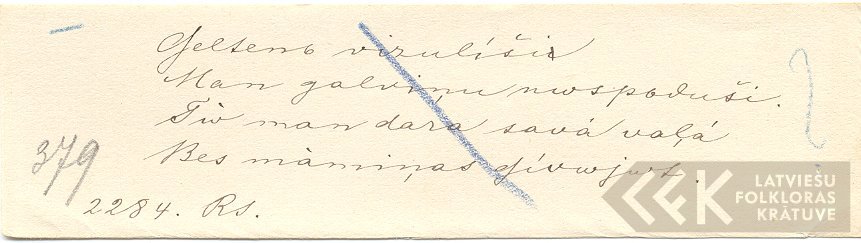 Geltenơ vizulīši
Man galviņu nưspoduši.
Tiơ man dara savá vaļá
Bes māmiņas
379
2284. Rs.
LATVIEŠU
FOLKLORAS
KRĀTUVE